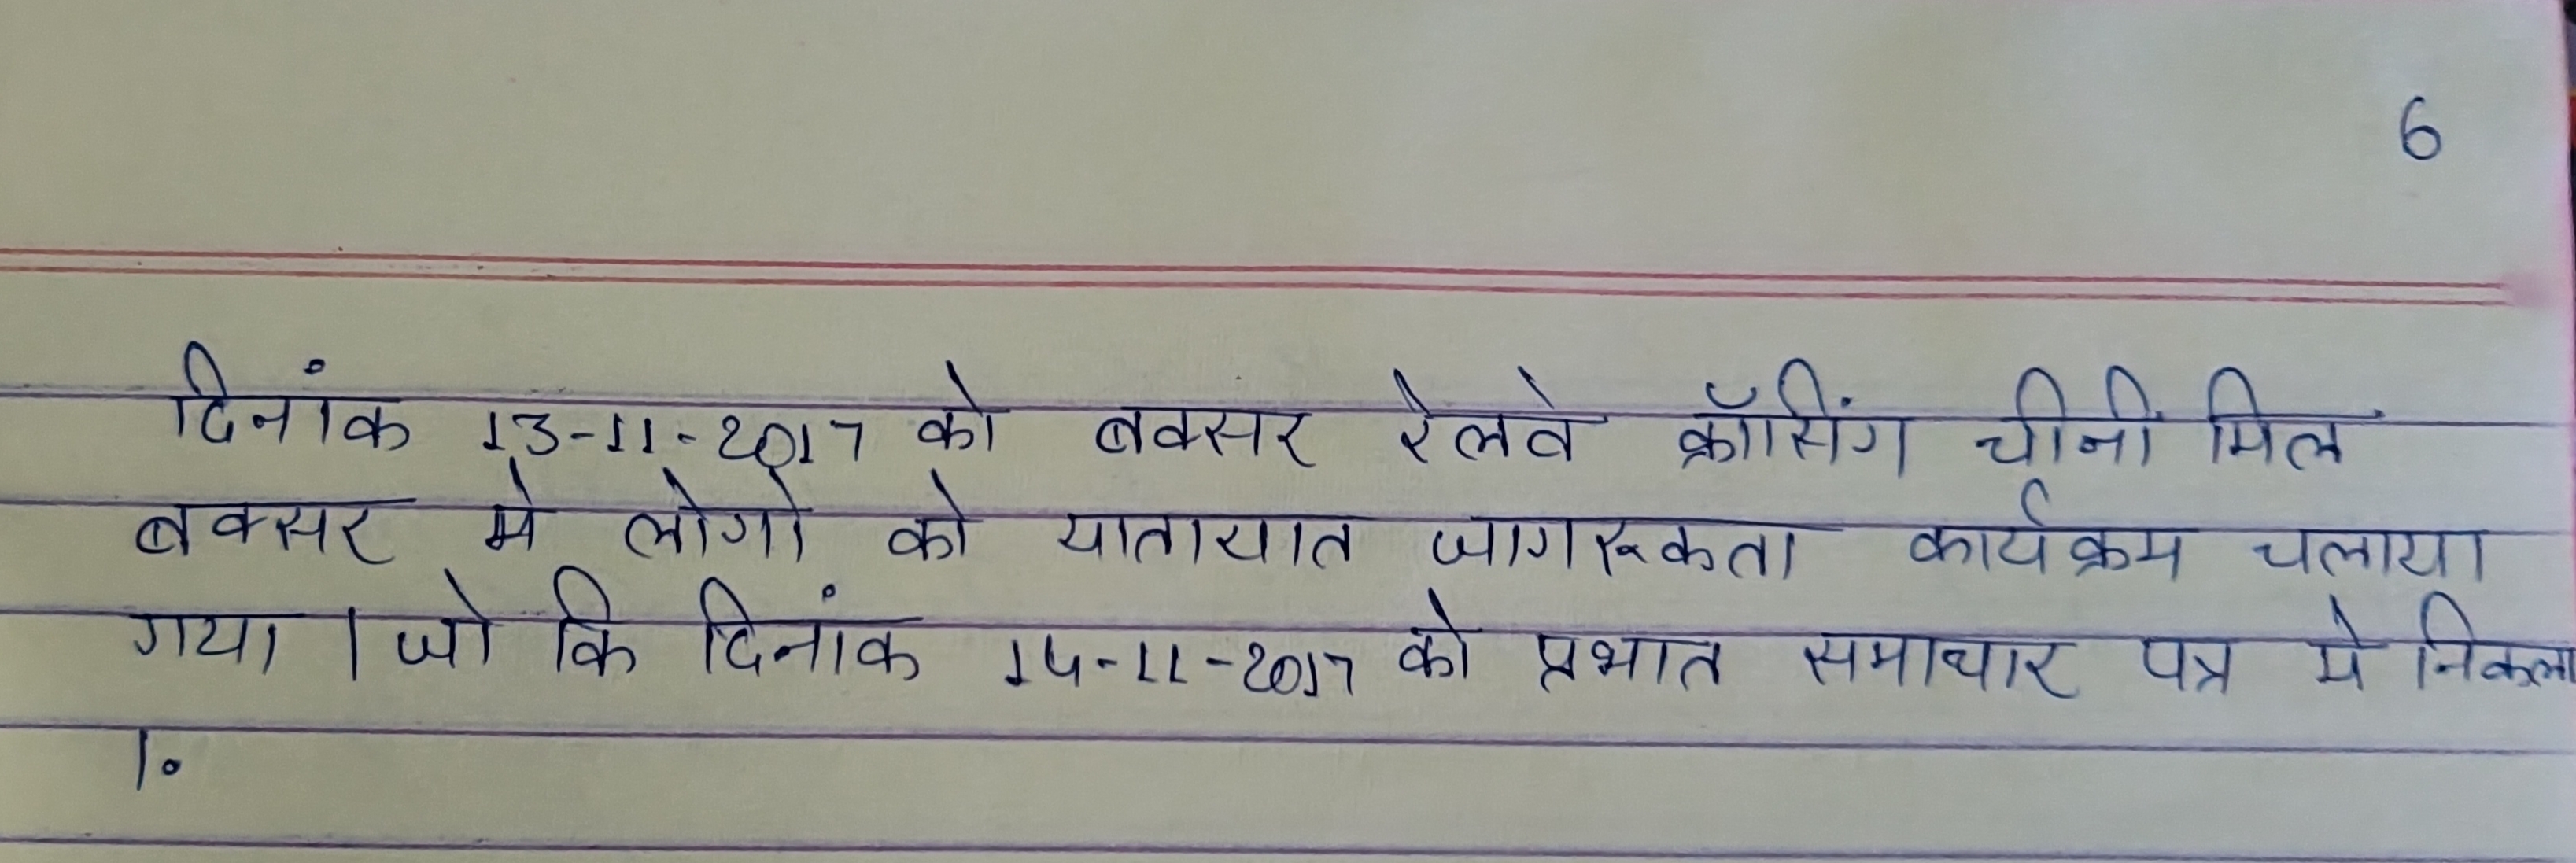 6
दिनांक 13-11-2017 को बक्सर रेलवे क्रॉसिंग चीनी मिल
बक्सर मे लोगो को यातायात जागरूकता कार्यक्रम चलाया
गया । जो कि दिनांक 14-11-2017 को प्रभात समाचार पत्र मे निकला
।॰